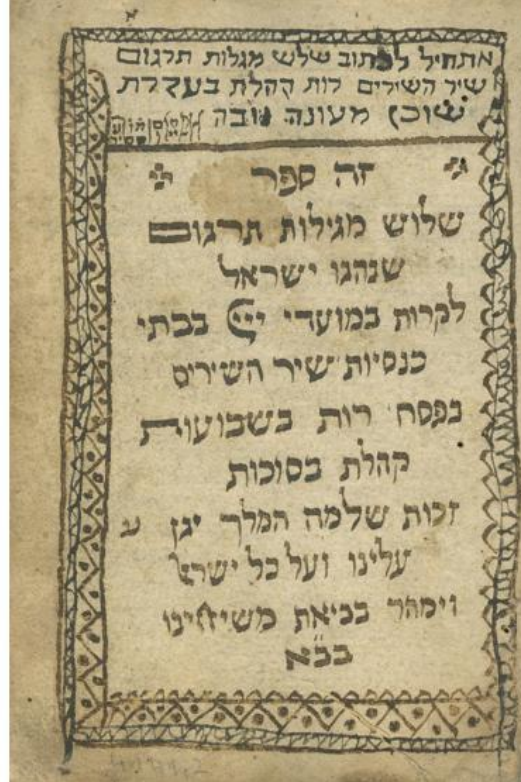 אתחיל לכתוב שלש מגלות תרגום
שיר השירים רות קהלת בעזרת
שוכן מעונה
זה ספר
שלוש מגילות תרגום
שנהגו ישראל
לקרות במועדי ייי בבתי
כנסיות שיר השירים
בפסח רות בשבועות
קהלת בסוכות
זכות שלמה המלך יגן ע
עלינו ועל כל ישרא
וימהר בביאת משיחינו
בב״א